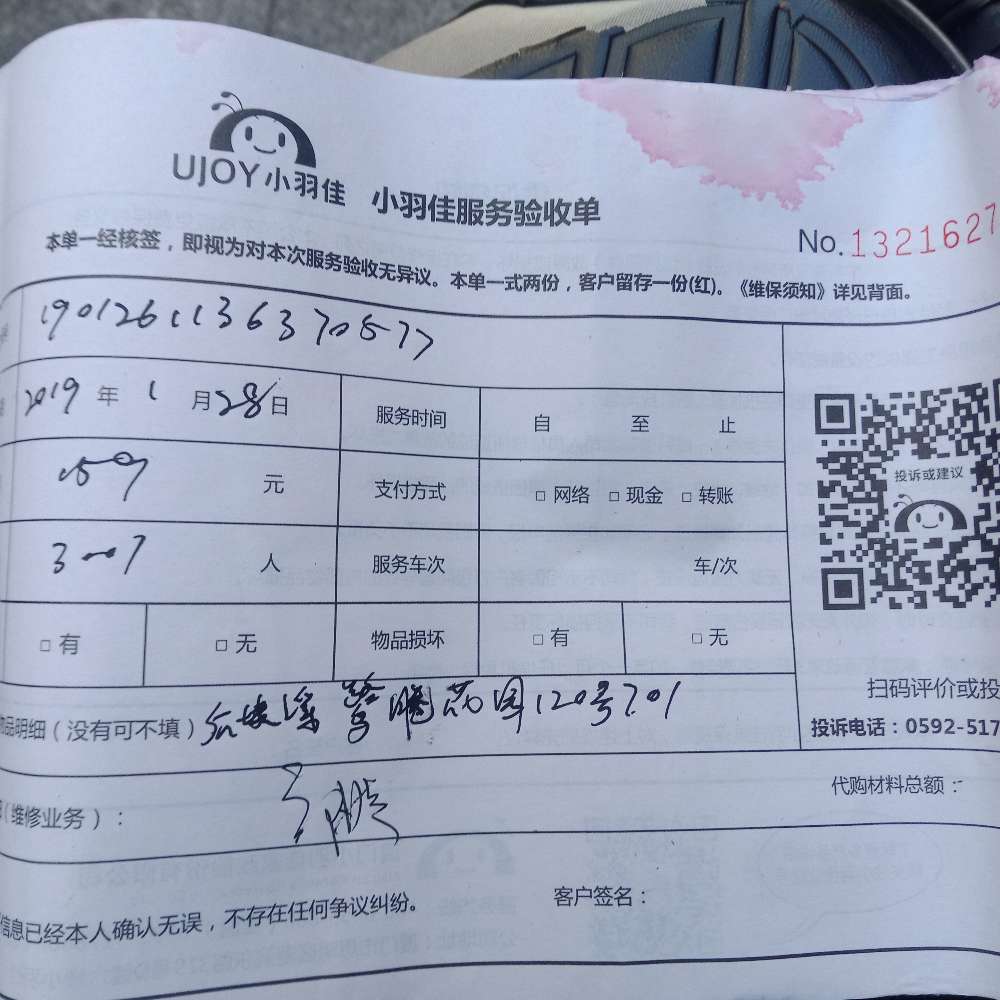 UJOY小羽佳 小羽佳服务验收单
No.1321627
本单一经核签，即视为对本次服务验收无异议。本单一式两份，客户留存一份(红)。《维保须知》详见背面。
1901261136370577
2019年1月28日 服务时间 自 至 止
元 支付方式 □ 网络 □ 现金 □ 转账
投诉或建议
人 服务车次 车/次
□ 有 □ 无 物品损坏 □ 有 □ 无
扫码评价或投
物品明细（没有可不填） 120号701
投诉电话：0592-517
（维修业务）：
代购材料总额：
信息已经本人确认无误，不存在任何争议纠纷。 客户签名：